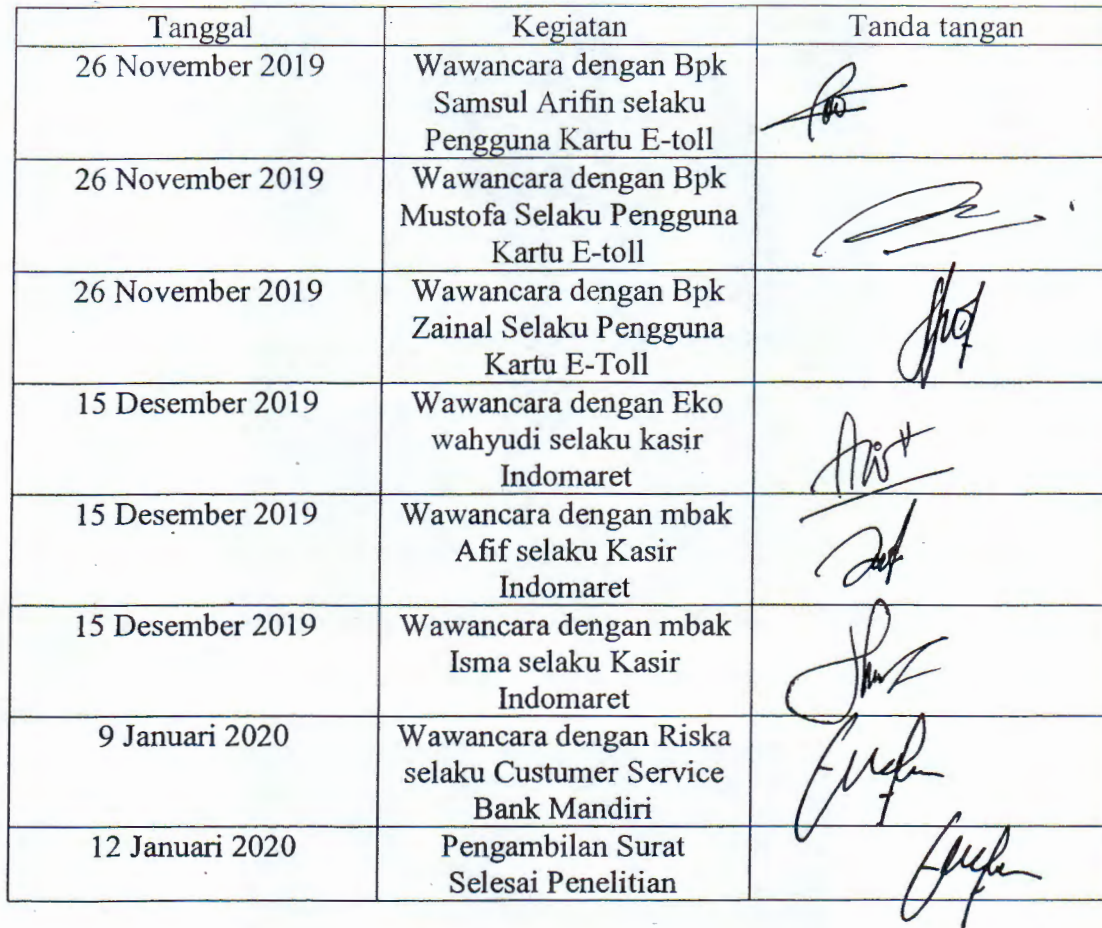 Tanggal Kegiatan Tanda tangan
26 November 2019 Wawancara dengan Bpk
Samsul Arifin selaku
Pengguna Kartu E-toll
26 November 2019 Wawancara dengan Bpk
Mustofa Selaku Pengguna
Kartu E-toll
26 November 2019 Wawancara dengan Bpk
Zainal Selaku Pengguna
Kartu E-Toll
15 Desember 2019 Wawancara dengan Eko
wahyudi selaku kasir
Indomaret
15 Desember 2019 Wawancara dengan mbak
Afif selaku Kasir
Indomaret
15 Desember 2019 Wawancara dengan mbak
Isma selaku Kasir
Indomaret
9 Januari 2020 Wawancara dengan Riska
selaku Custumer Service
Bank Mandiri
12 Januari 2020 Pengambilan Surat
Selesai Penelitian